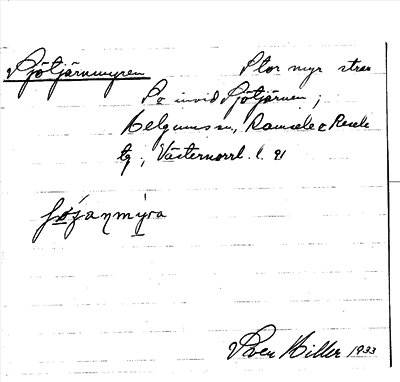 Sjötjärnmyren Stor myr strax
SO invid Sjötjärnen;
Helgums sn, Ramsele o Resele
tg; Västernorrl. l. 21
Sven Hiller 1933